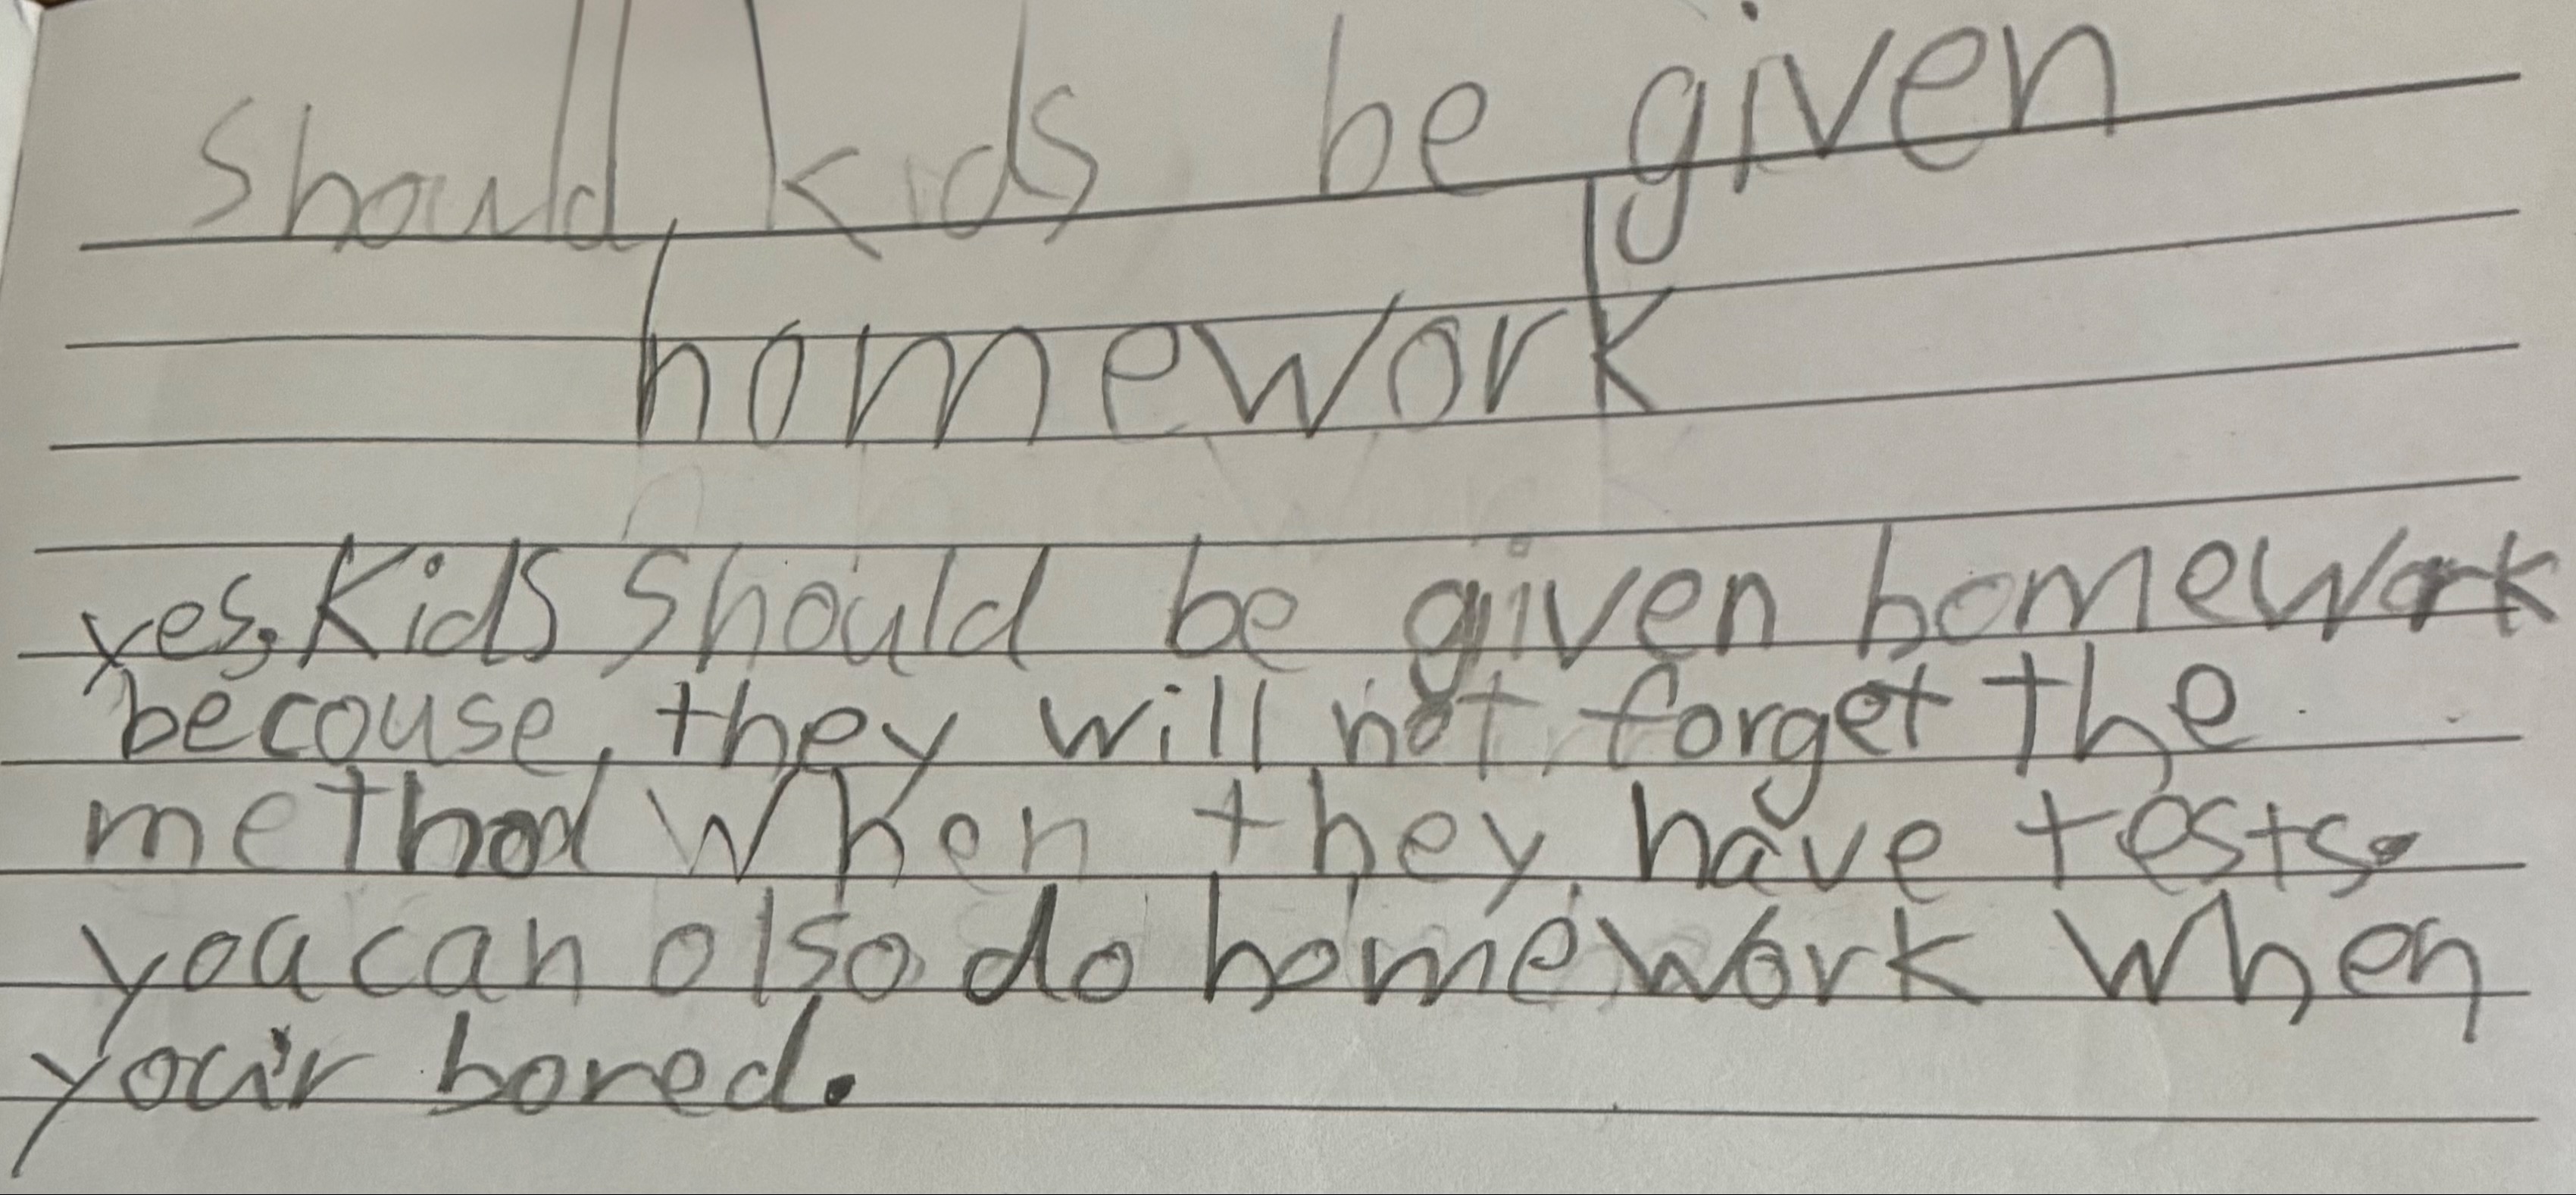 Should kids be given
homework
yes, Kids Should be given homework
becouse, they will not forget the
method When they, have tests.
you can olso do homework When
you'r bored.